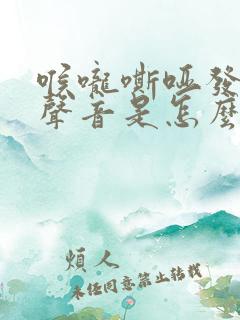 喉嚨嘶啞發
聲音是怎麼
煩人
未經同意禁止轉載